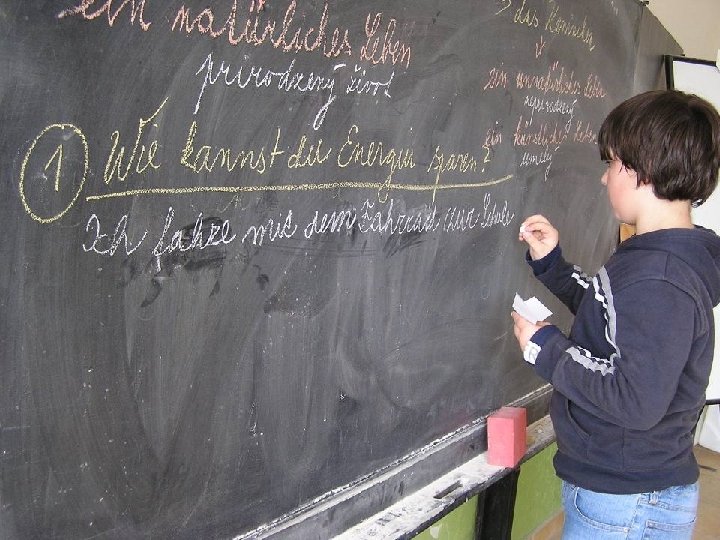 ein natürliches Leben
prirodzený život
→ das Klonieren
ein unnatürliches Leben
neprirodzený
ein künstliches Leben
umelý
1 Wie kannst du Energui sparen?
Ich fahre mit dem Fahrrad zur Schule